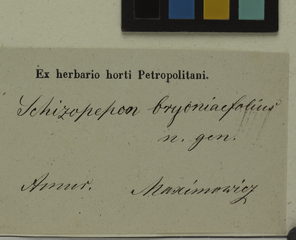 Ex herbario horti Petropolitani.
Schizopepon bryoniaefolius
n. gen.
Amur. Maximowicz